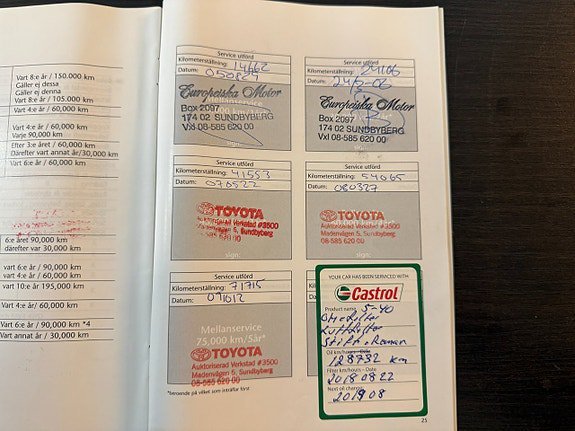 Vart 8:e år / 150.000 km
Gäller ej dessa
Gäller ej dessa
Vart 8:e år / 105.000 km
Vart 4:e år / 60,000 km
Vart 4:e år / 60,000 km
Varje 90,000 km
Efter 3:e året / 60,000 km
Därefter vart annat år/30,000 km
Vart 6:e år / 60,000 km
6:e året 90,000 km
därefter var 30,000 km
vart 6:e år / 90,000 km
vart 4:e år / 60,000 km
vart 10:e år 195,000 km
Vart 4:e år / 60,000 km
Vart 6:e år / 90,000 km *4
Vart annat år / 30,000 km
Service utförd
Kilometerställning: 14662
Datum: 050829
Europeiska Motor
Mellanservice
Box 2097
174 02 SUNDBYBERG
Vxl 08-585 620 00
sign:
Service utförd
Kilometerställning: 24106
Datum: 24/5-06
Europeiska Motor
Box 2097
174 02 SUNDBYBERG
Vxl 08-585 620 00
sign:
Service utförd
Kilometerställning: 41553
Datum: 070522
TOYOTA
Auktoriserad Verkstad #3500
Madenvägen 5, Sundbyberg
08-585 620 00
sign:
Service utförd
Kilometerställning: 54665
Datum: 080327
TOYOTA
Auktoriserad Verkstad #3500
Madenvägen 5, Sundbyberg
08-585 620 00
sign:
Service utförd
Kilometerställning: 71715
Datum: 091012
Mellanservice
75,000 km/5år*
TOYOTA
Auktoriserad Verkstad #3500
Madenvägen 5, Sundbyberg
08-585 620 00
*beroende på vilket som inträffar först
YOUR CAR HAS BEEN SERVICED WITH
Castrol
Product name 5-40
Oljefilter
Luftfilter
Stift. Remmar
Oil km/hours - Date
128732 km
Filter km/hours - Date
20180822
Next oil change
2019.08
25